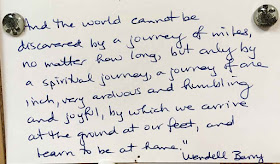 "And the world cannot be
discovered by a journey of miles,
no matter how long, but only by
a spiritual journey, a journey of one
inch, very arduous and humbling
and joyful, by which we arrive
at the ground at our feet, and
learn to be at home."
Wendell Berry